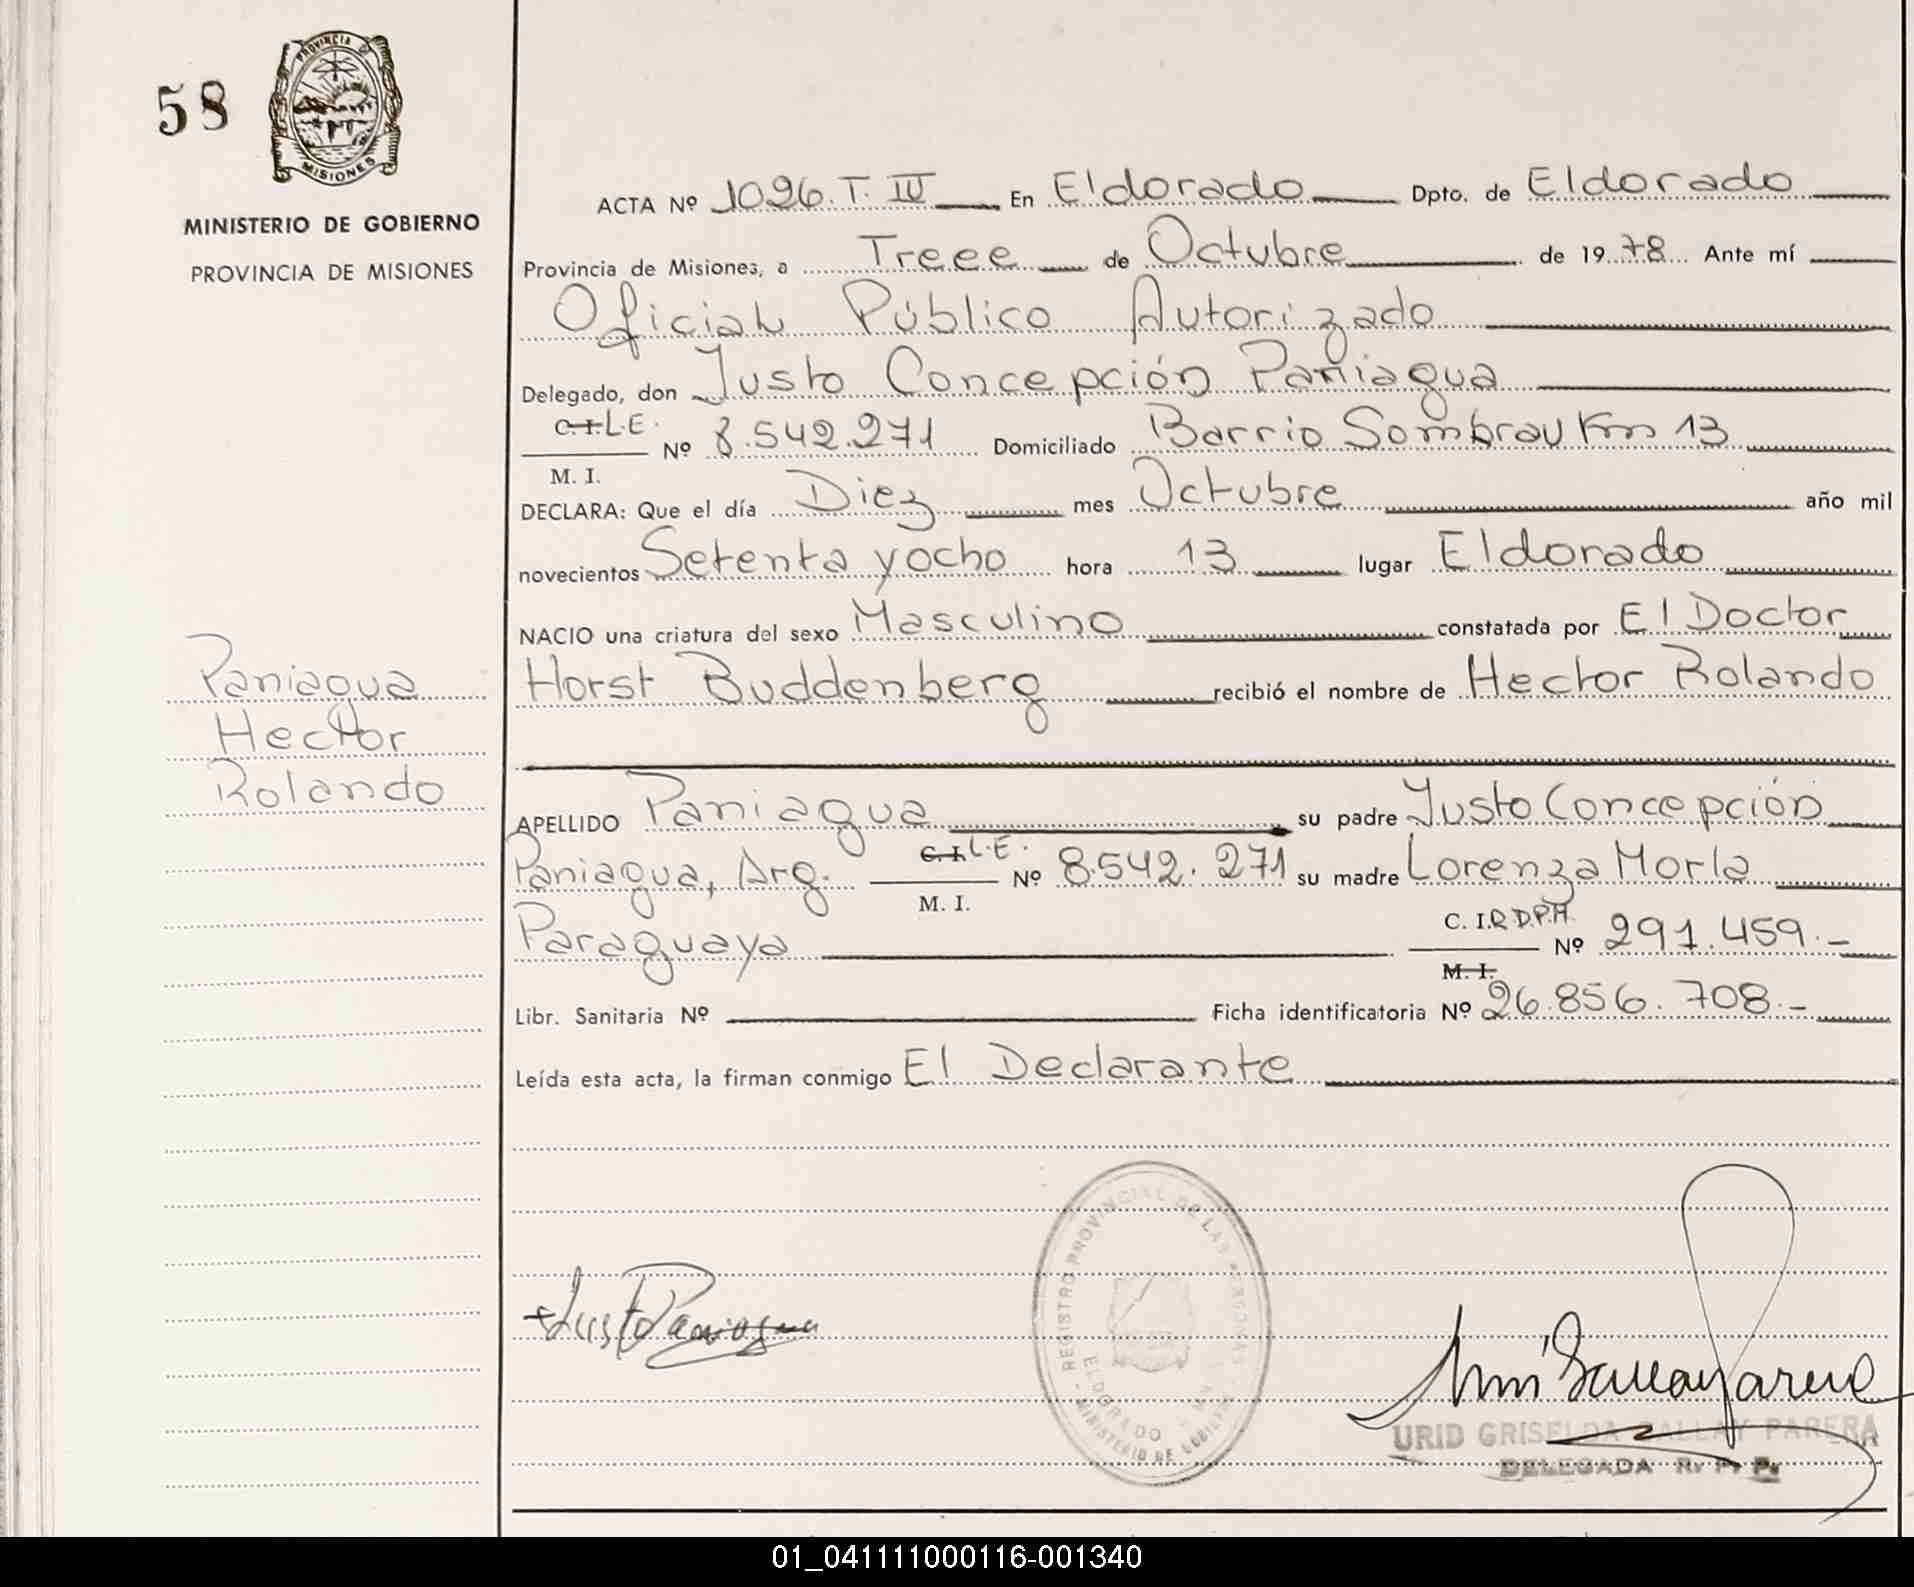 58
PROVINCIA DE
MISIONES
MINISTERIO DE GOBIERNO
PROVINCIA DE MISIONES
ACTA Nº 1026. T. IV En Eldorado Dpto. de Eldorado
Provincia de Misiones, a Trece de Octubre de 1978 Ante mí
Oficial Público Autorizado
Delegado, don Justo Concepción Paniagua
C.I. L.E. Nº 8.542.271 Domiciliado Barrio Sombray Km 13
M. I.
DECLARA: Que el día Diez mes Octubre año mil
novecientos Setenta y ocho hora 13 lugar Eldorado
NACIO una criatura del sexo Masculino constatada por El Doctor
Horst Buddenberg recibió el nombre de Hector Rolando
Paniagua
Hector
Rolando
APELLIDO Paniagua su padre Justo Concepción
Paniagua, Arg. C.I. L.E. Nº 8.542.271 su madre Lorenza Morla
M. I.
Paraguaya C. I.R.D.P.A. Nº 291.459.-
M. I.
Libr. Sanitaria Nº Ficha identificatoria Nº 26.856.708.-
Leída esta acta, la firman conmigo El Declarante
Justo Paniagua
REGISTRO PROVINCIAL DE LAS PERSONAS
ELDORADO
MINISTERIO DE GOBIERNO
URID GRISELDA GALLAY PARERA
DELEGADA R. P. P.
01_041111000116-001340